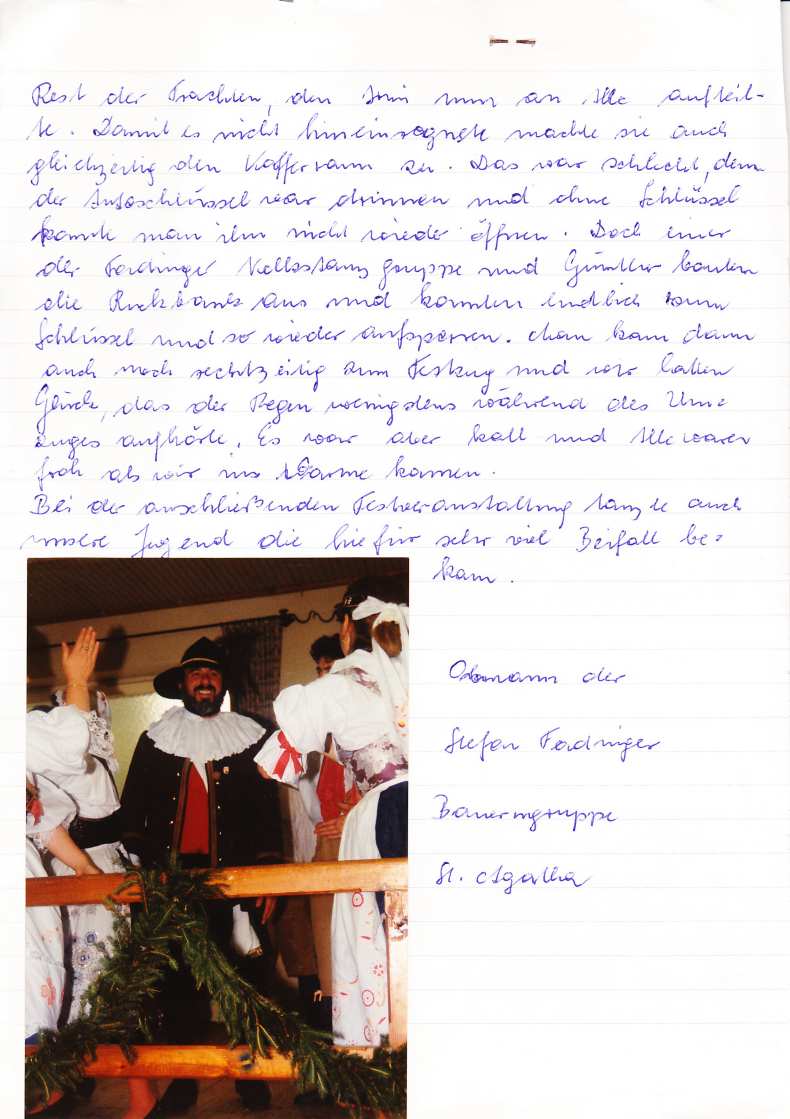 Rest der Trachten, den nun an Alle aufteil-
te. Damit es nicht hineinregnete machte sie auch
gleichzeitig den Kofferraum zu. Das war schlecht, denn
der Autoschlüssel war drinnen und ohne Schlüssel
konnte man ihn nicht wieder öffnen. Doch einer
der Fadinger Volkstanzgruppe und Günther bauten
die Rückbank aus und konnten endlich zum
Schlüssel und so wieder aufsperren. Man kam dann
auch noch rechtzeitig zum Festzug und wir hatten
Glück, das der Regen wenigstens während des Um=
zuges aufhörte. Es war aber kalt und Alle waren
froh als wir ins Warme kamen.
Bei der anschließenden Festveranstaltung tanzte auch
unsere Jugend die hiefür sehr viel Beifall be=
kam.
Obmann der
Stefan Fadinger
Bauerngruppe
St. Agatha